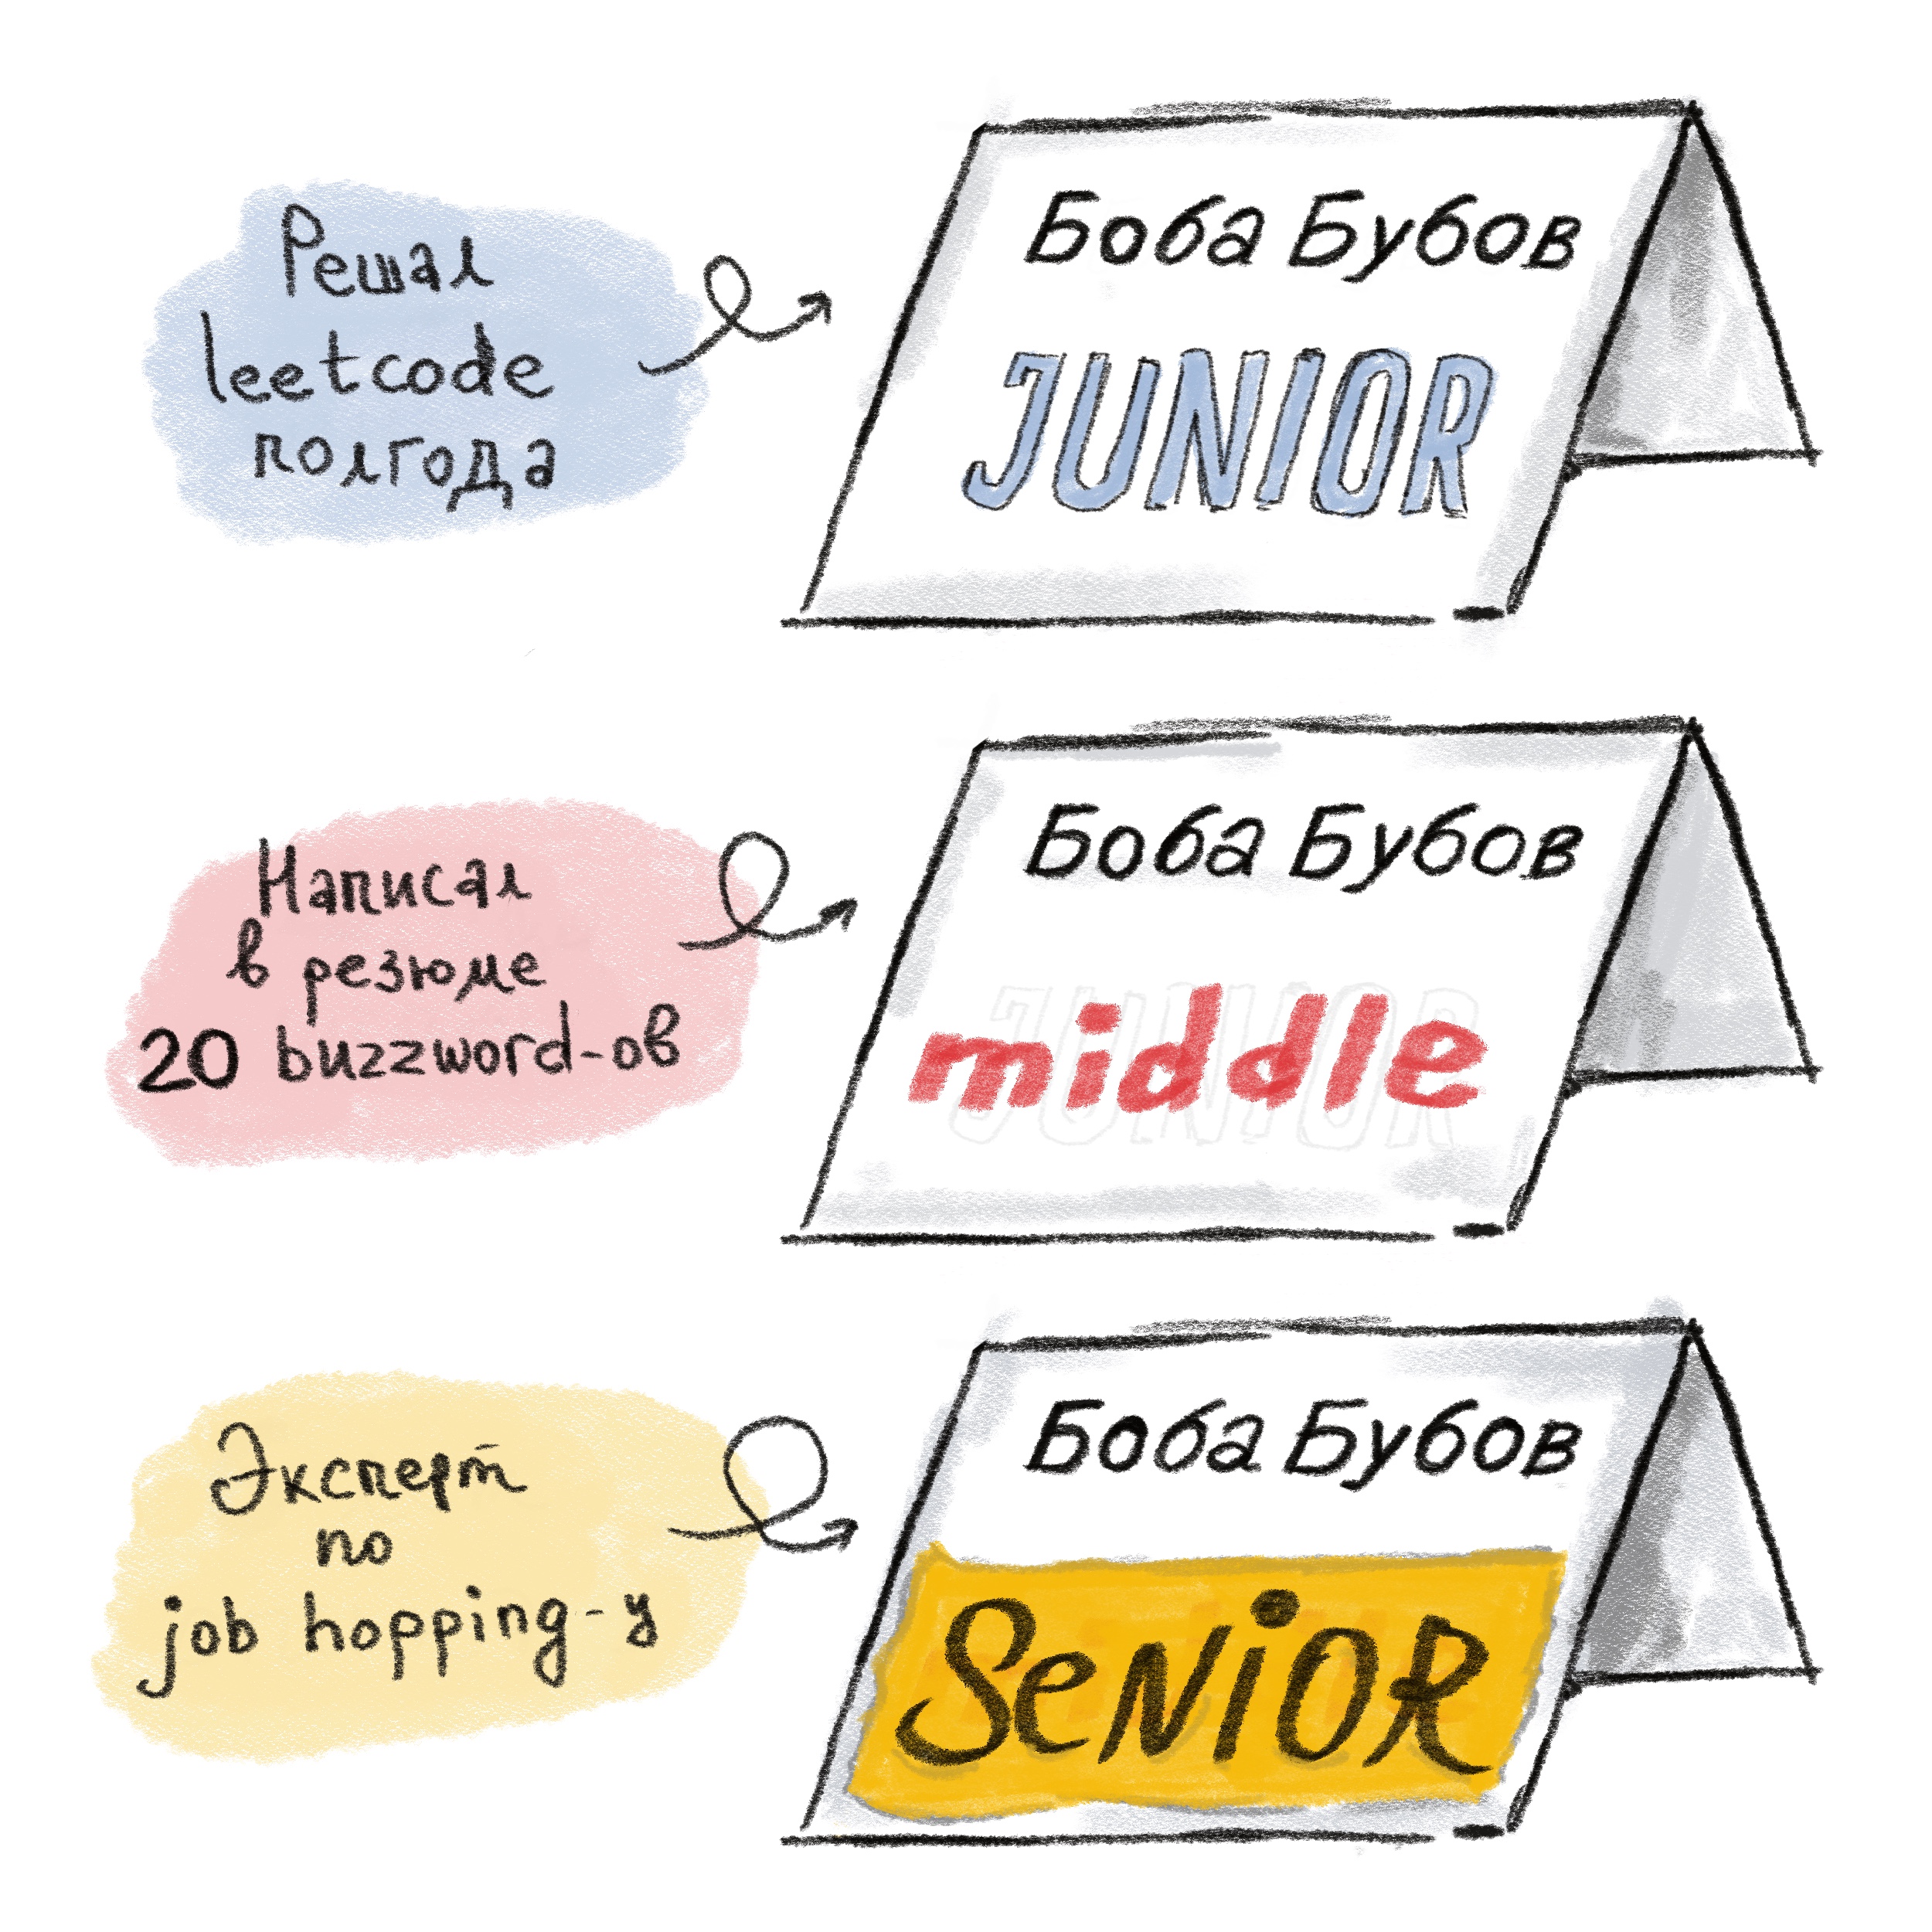 Решал
leetcode
полгода
Боба Бубов
JUNIOR
Написал
в резюме
20 buzzword-ов
Боба Бубов
JUNIOR
middle
Эксперт
по
job hopping-у
Боба Бубов
SeNiOR